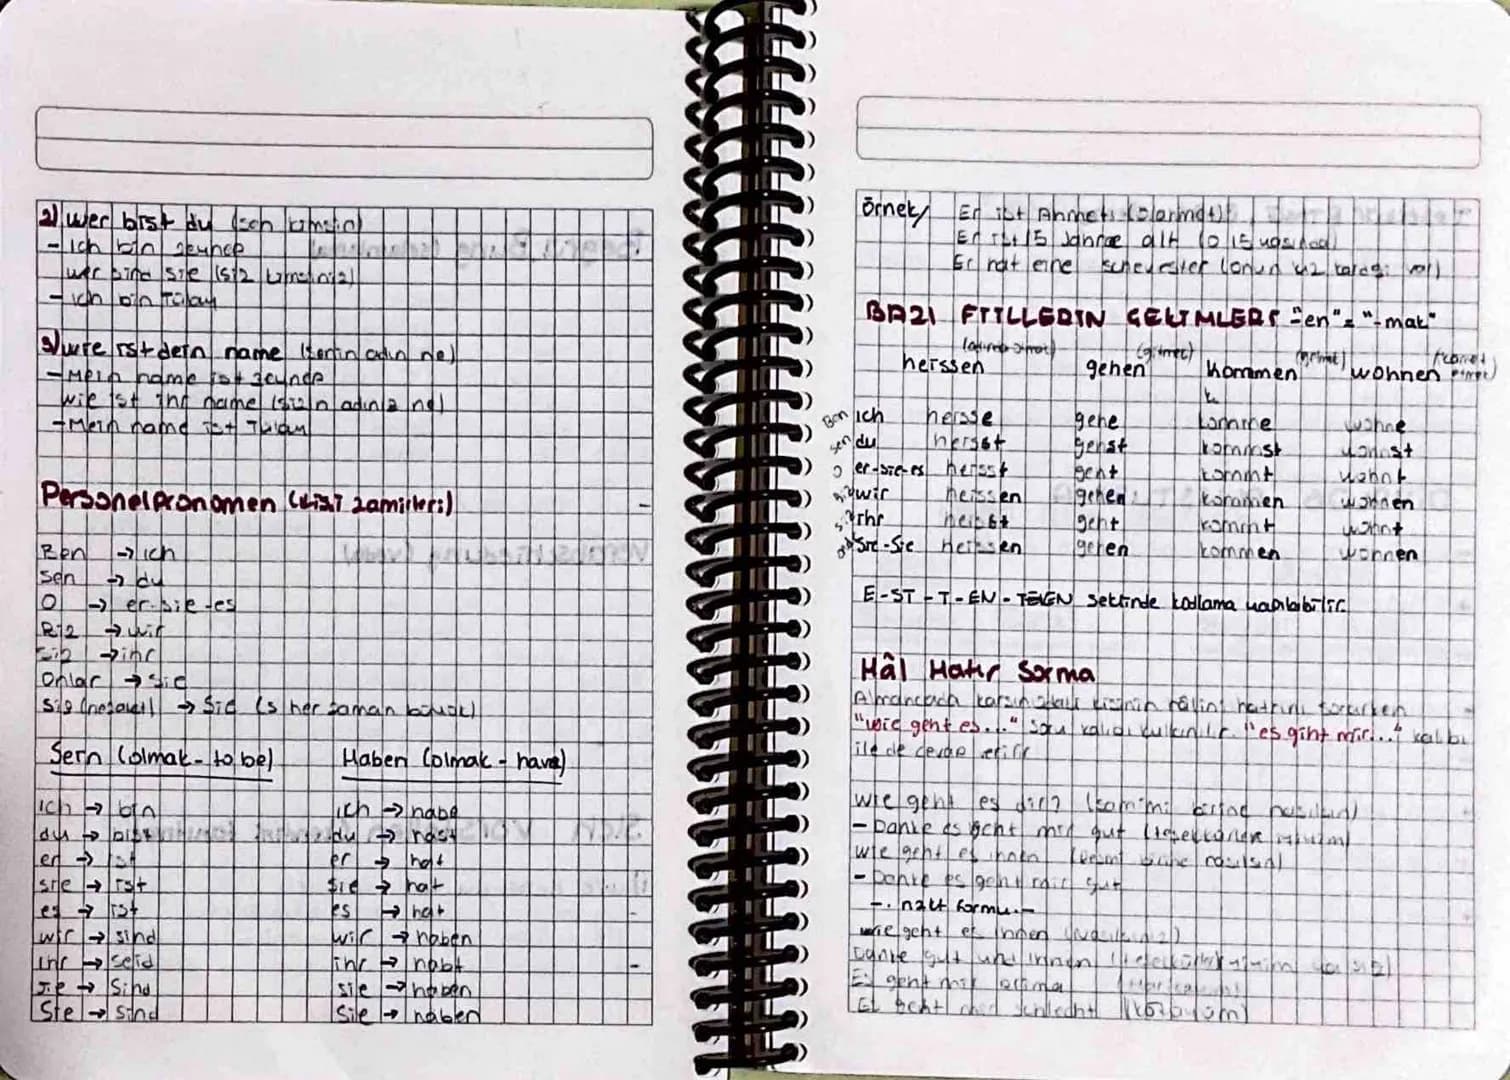 2) wer bist du (sen kimsin)
- ich bin zeynep
wer sind sie (siz kimsiniz)
- ich bin Tülay
3) wie ist dein name (senin adın ne)
- Mein name ist zeynep
wie ist ihr name (sizin adınız ne)
- Mein name ist Tülay
Personelpronomen (kişi zamirleri)
Ben → ich
Sen → du
O → er-sie-es
Biz → wir
Siz → ihr
Onlar → sie
Siz (nezaket) → Sie (s her zaman büyük)
Sein (olmak - to be)
ich → bin
du → bist
er → ist
sie → ist
es → ist
wir → sind
ihr → seid
sie → sind
Sie → sind
Haben (olmak - have)
ich → habe
du → hast
er → hat
sie → hat
es → hat
wir → haben
ihr → habt
sie → haben
Sie → haben
Örnek/ Er ist Ahmet
Er ist 15 Jahre alt (o 15 yaşında)
Er hat eine schwester (onun kız kardeşi var)
BAZI FİİLLERİN ÇEKİMLERİ "-en" = "-mak"
heissen gehen (gitmek) kommen (gelmek) wohnen (ikamet etmek)
Ben ich heisse gehe komme wohne
Sen du heisst gehst kommst wohnst
O er-sie-es heisst geht kommt wohnt
Biz wir heissen gehen kommen wohnen
Siz ihr heisst geht kommt wohnt
Sie-Sie heissen gehen kommen wohnen
E-ST-T-EN-T-EN Şeklinde kodlama yapılabilir.
Hâl Hatır Sorma
Almancada karşınızdaki kişinin hâlini hatrını sorarken
"wie geht es..." soru kalıbı kullanılır. "es geht mir..." kalıbı
ile de cevap verilir
wie geht es dir? (samimi birine nasılsın)
- Danke es geht mir gut (teşekkürler iyiyim)
wie geht es ihnen
- Danke es geht mir gut
-. nazik formu.-
wie geht es Ihnen (Nasılsınız)
Danke gut und Ihnen (teşekkürler iyiyim ya siz)
Es geht mir prima
Es geht mir schlecht (kötüyüm)